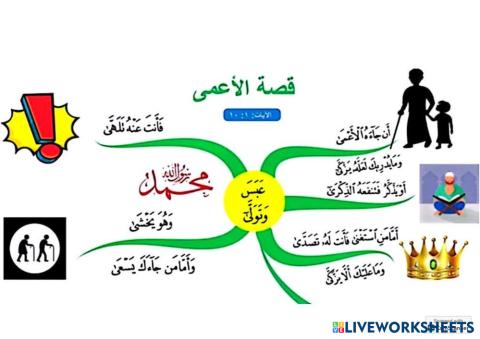 قصة الأعمى
الآيات: ١ : ١٠
أَن جَاءَهُ الْأَعْمَىٰ
وَمَا يُدْرِيكَ لَعَلَّهُ يَزَّكَّىٰ
أَوْ يَذَّكَّرُ فَتَنفَعَهُ الذِّكْرَىٰ
عَبَسَ
وَتَوَلَّىٰ
أَمَّا مَنِ اسْتَغْنَىٰ فَأَنتَ لَهُ تَصَدَّىٰ
وَمَا عَلَيْكَ أَلَّا يَزَّكَّىٰ
فَأَنتَ عَنْهُ تَلَهَّىٰ
محمد رسول الله
وَهُوَ يَخْشَىٰ
وَأَمَّا مَن جَاءَكَ يَسْعَىٰ
LIVEWORKSHEETS